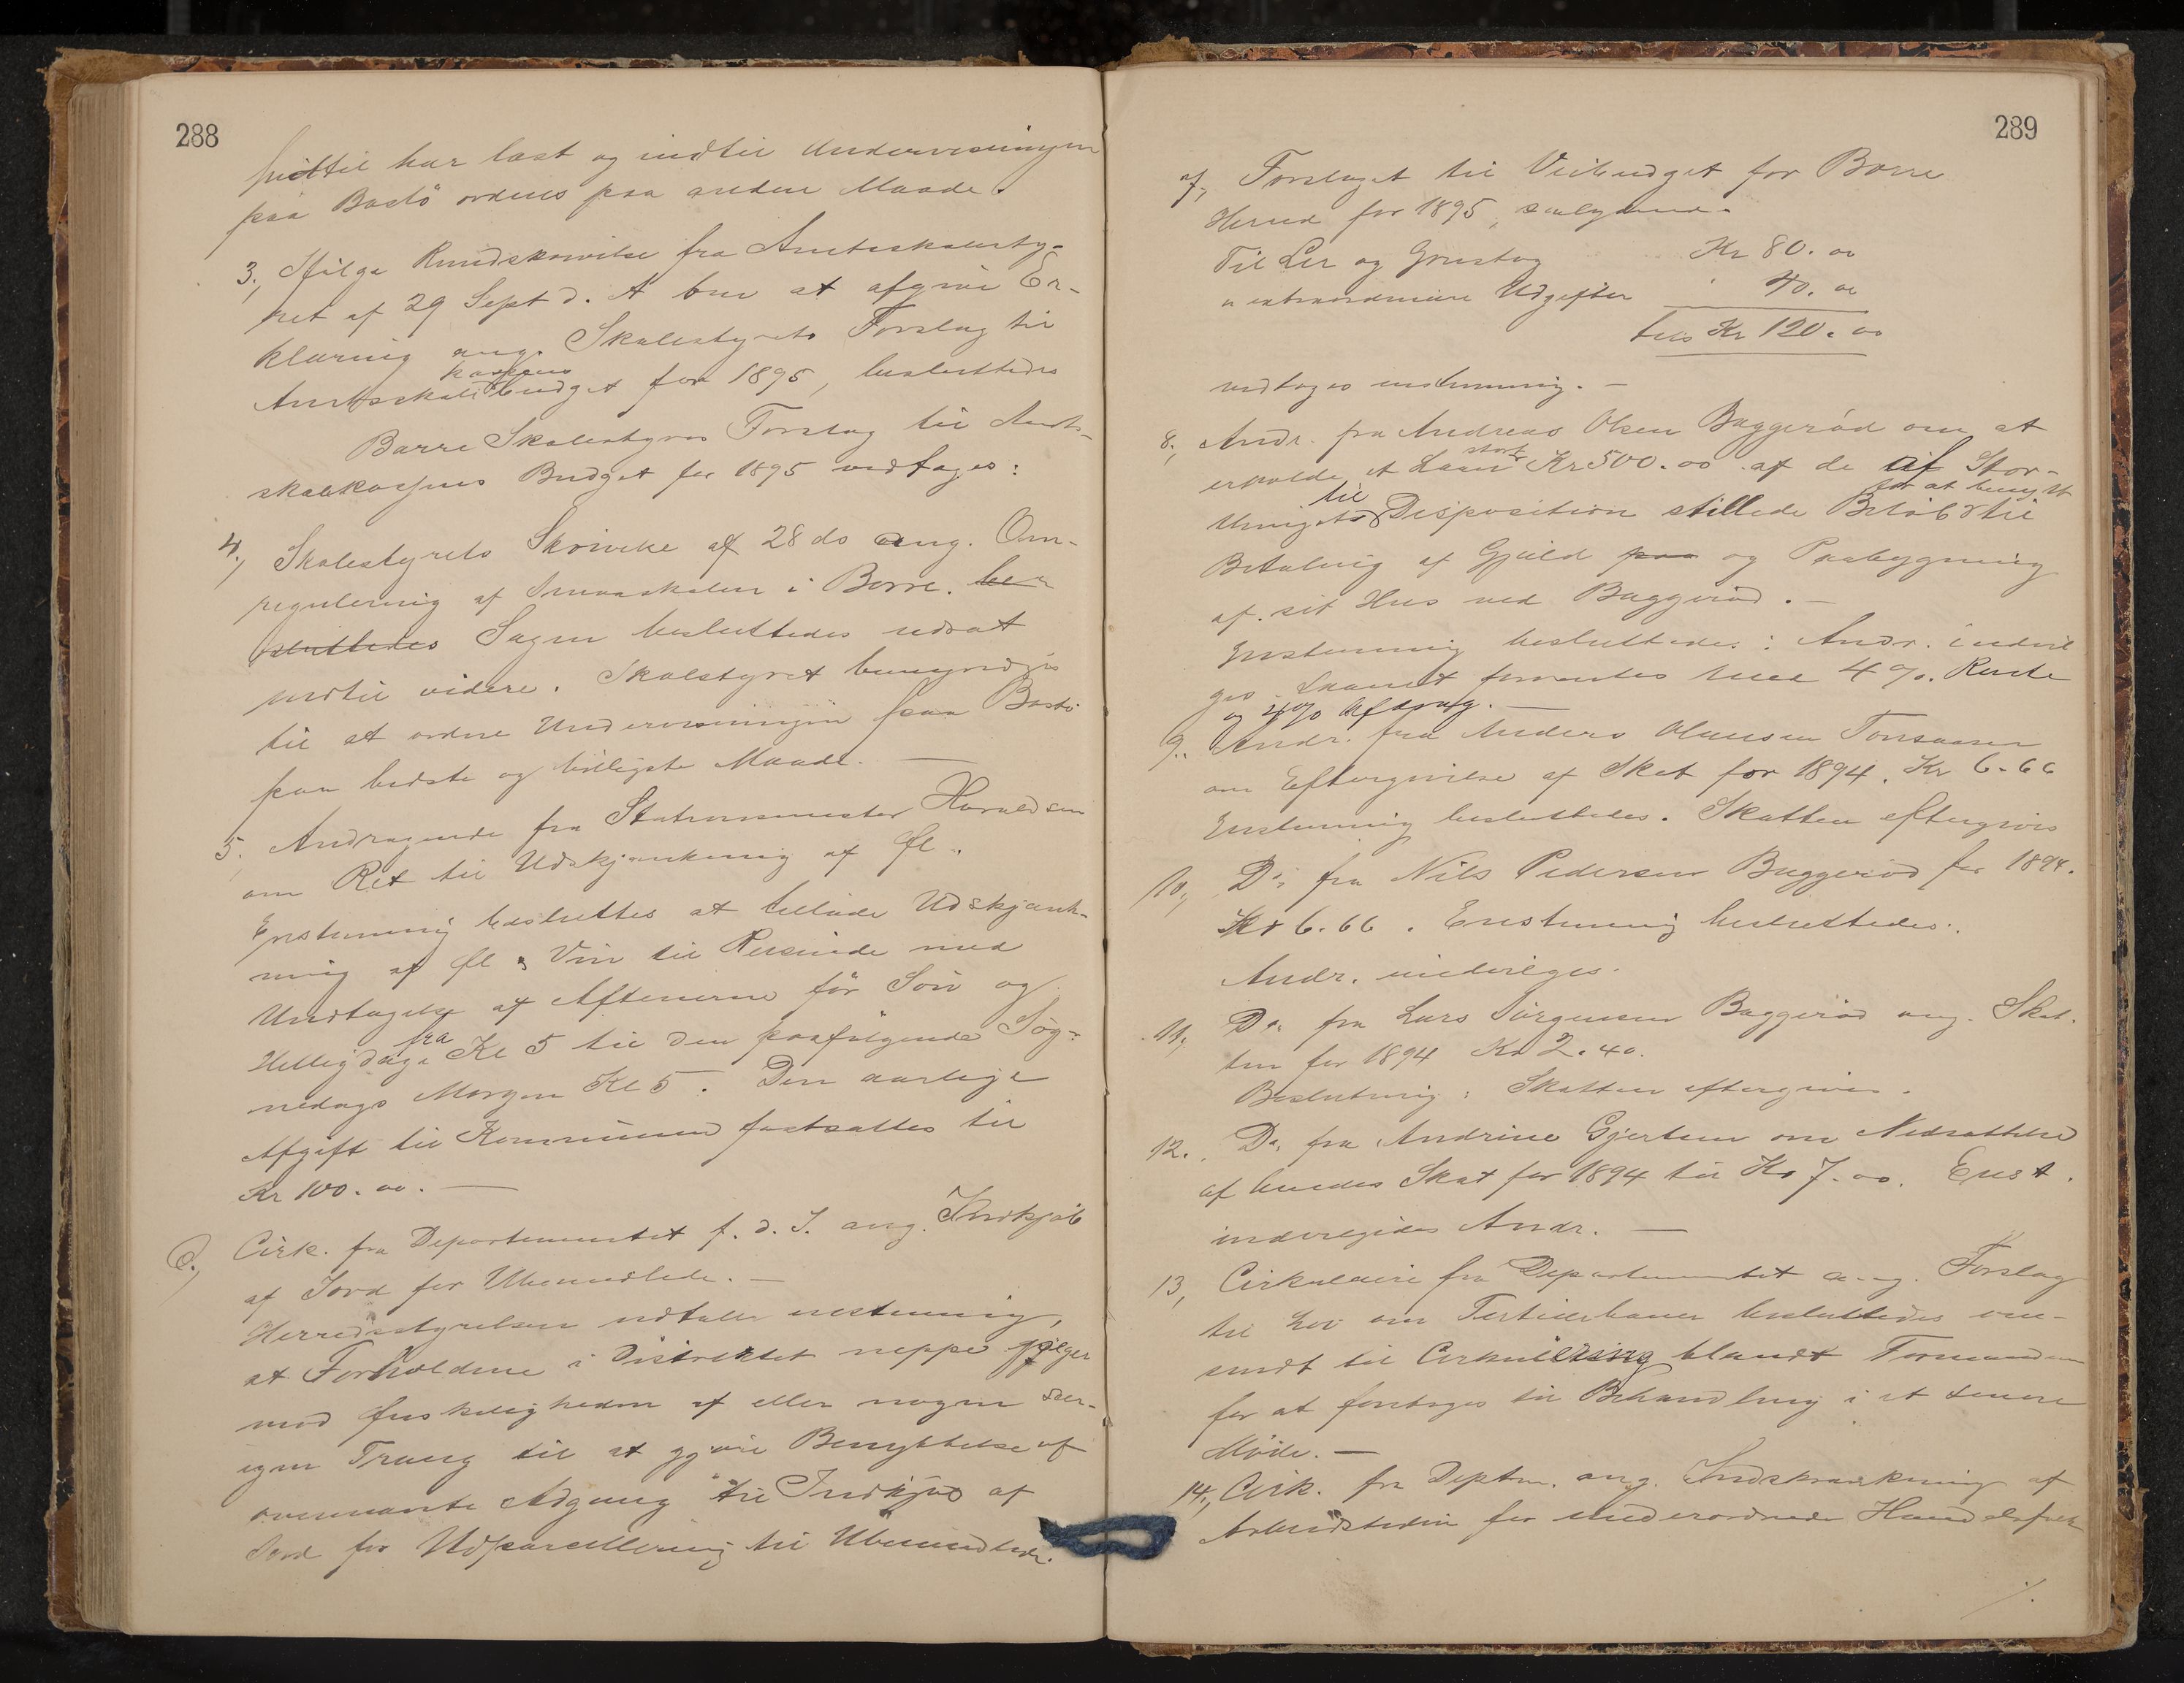 288
hidtil har læst og indtil Undervisningen
paa Bastö ordnes paa anden Maade.
3., Ifølge Rundskrivelse fra Amtsskolesty-
ret af 29 Sept d. A om at afgive Er-
klæring ang. Skolestyrets Forslag til
Amtsskolekassens budget for 1895, besluttedes
Borre Skolestyres Forslag til Amts-
skolekassens Budget for 1895 vedtages:
4., Skolestyrets Skrivelse af 28 ds ang. Om-
regulering af Smaaskolen i Borre. be-
sluttedes Sagen besluttedes udsat
indtil videre. Skolestyret bemyndiges
til at ordne Undervisningen paa Bastö
paa bedste og billigste Maade. —
5., Andragende fra Stationsmester Haraldsen
om Ret til Udskjænkning af Øl.
Enstemmig besluttes at tillade Udskjænk-
ning af Øl & Vin til Reisende med
Undtagelse af Aftenerne før Søn og
Helligdage fra Kl 5 til den paafølgende Søg-
nedags Morgen Kl 5. Den aarlige
Afgift til Kommunen fastsattes til
Kr 100.00. —
6., Cirk. fra Departementet f. d. I. ang. Indkjøb
af Jord for Ubemidlede. —
Herredsstyrelsen udtaler enstemmig,
at Forholdene i Distriktet neppe følger
med Ønskeligheden af eller nogen sær-
egen Trang til at gjøre Benyttelse af
ovennævnte Adgang til Indkjøb af
Jord for Udparcellering til Ubemidlede.
289
7., Forslaget til Veibudget for Borre
Herred for 1895, saalydende
Til Ler og Grustag Kr 80.00
" extraordinære Udgifter " 40.00
tils Kr 120.00
vedtages enstemmig. —
8., Andr. fra Andreas Olsen Baggerød om at
erholde et Laan stort Kr 500.00 af de af Stor-
thinget til Disposition stillede Beløb for at benyt til
Betaling af Gjæld paa og Paabygning
af sit Hus ved Baggerød. —
Enstemmig besluttedes: Andr. indvil
ges. Laanet forrentes med 4 %. Rente
og 4 % Afdrag. —
9., Andr. fra Anders Olausen
om Eftergivelse af Skat for 1894. Kr 6.66
Enstemmig besluttedes. Skatten eftergives
10., Do; fra Nils Pedersen Baggerød for 1894.
Kr 6.66. Enstemmig besluttedes:
Andr. indvilges.
11., Do fra Lars Jörgensen Baggerød ang. Skat-
ten for 1894 Kr 2.40.
Beslutning: Skatten eftergives.
12. Do. fra Andrine Gjertsen om Nedsættelse
af hendes Skat for 1894 til Kr 7.00. Enst.
indvilgedes Andr. —
13, Cirkulære fra Departementet ang. Forslag
til Lov om Tertiærbaner besluttedes om-
sendt til Cirkulering blandt Formændene
for at foretages til Behandling i et senere
Møde. —
14., Cirk. fra Deptm. ang. Indskrænkning af
Arbeidstiden for underordnede Handelsfolk
./.